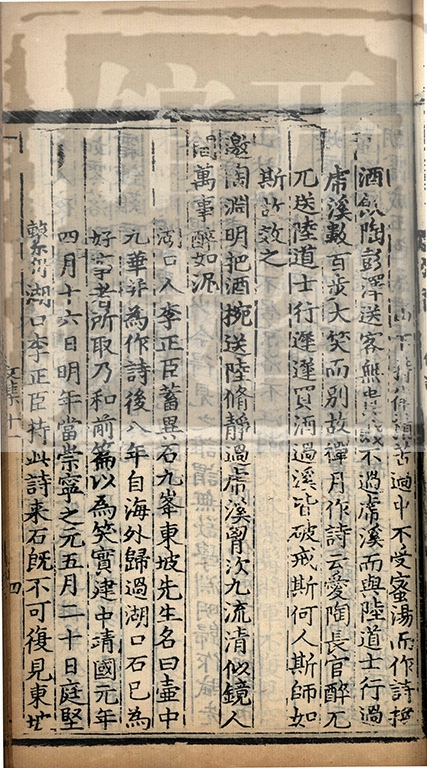 山下持律精苦過中不受蜜湯而作詩換
酒飲陶彭澤送客無貴賤不過虎溪而與陸道士行過
虎溪數百步大笑而別故禪月作詩云愛陶長官醉兀
兀送陸道士行遲遲買酒過溪皆破戒斯何人斯師如
斯故效之
邀陶淵明把酒椀送陸脩靜過虎溪胷次九流清似鏡人
間萬事醉如泥
湖口人李正臣蓄異石九峯東坡先生名曰壷中
九華并為作詩後八年自海外歸過湖口石已為
好事者所取乃和前篇以為笑實建中靖國元年
四月十六日明年當崇寧之元五月二十日庭堅
繫舟湖口李正臣持此詩来石旣不可復見東坡
文集十一
四